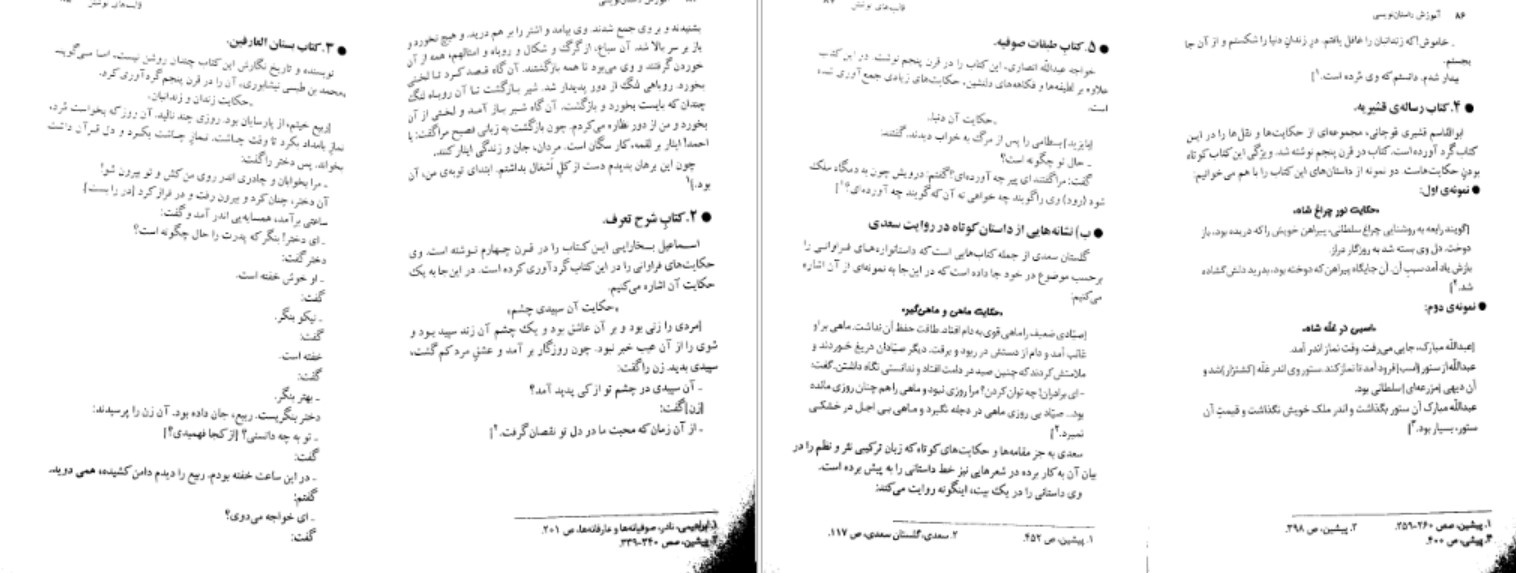 بشنیدند و بر وی جمع شدند. وی بیامد و اشتر را بر هم درید. و هیچ نخورد و
باز بر سر بالا شد. آن سباع، از گرگ و شکال و روباه و امثالهم، همه از آن
خوردن گرفتند و وی می‌بود تا همه بازگشتند. آن گاه قصد کرد تا لختی
بخورد. روباهی لنگ از دور پدیدار شد. شیر بازگشت تا آن روباه لنگ
چندان که بایست بخورد و بازگشت. آن گاه شیر باز آمد و لختی از آن
بخورد و من از دور نظاره می‌کردم. چون بازگشت به زبانی فصیح مرا گفت: یا
احمد! ایثار بر لقمه، کار سگان است. مردان، جان و زندگی ایثار کنند.
چون این برهان بدیدم دست از کلِ اَشغال بداشتم. ابتدای توبه‌ی من، آن
بود.]۱
● ۲. کتابِ شرح تعرف.
اسماعیل بخارایی این کتاب را در قرن چهارم نوشته است. وی
حکایت‌های فراوانی را در این کتاب گردآوری کرده است. در این‌جا به یک
حکایت آن اشاره می‌کنیم.
«حکایت آن سپیدی چشم»
[مردی را زنی بود و بر آن عاشق بود و یک چشم آن زن سپید بود و
شوی را از آن عیب خبر نبود. چون روزگار بر آمد و عشقِ مرد کم گشت،
سپیدی بدید. زن را گفت:
ـ آن سپیدی در چشم تو از کی پدید آمد؟
[زن] گفت:
ـ از آن زمان که محبت ما در دل تو نقصان گرفت.۲]
۱. ابراهیمی، نادر، صوفیانه‌ها و عارفانه‌ها، ص ۲۰۱.
۲. پیشین، صص ۳۴۰-۳۳۹.
قالب‌های نوشتن
● ۳. کتاب بستان العارفین.
نویسنده و تاریخ نگارش این کتاب چندان روشن نیست، اما می‌گویند
«محمد بن طبسی نیشابوری، آن را در قرن پنجم گردآوری کرد.
«حکایت زندان و زندانبان»
[ربیع خیثم، از پارسایان بود. روزی چند نالید. آن روز که بخواست مُرد،
نماز بامداد بکرد تا وقت چاشت. نماز چاشت بکرد و دل قرآن داشت
بخواند. پس دختر را گفت:
ـ مرا بخوابان و چادری اندر روی من کش و تو بیرون شو!
آن دختر، چنان کرد و بیرون رفت و در فراز کرد [در را بست].
ساعتی برآمد، همسایه‌یی اندر آمد و گفت:
ـ ای دختر! بنگر که پدرت را حال چگونه است؟
دختر گفت:
ـ او خوش خفته است.
گفت:
ـ نیکو بنگر.
گفت:
خفته است.
گفت:
ـ بهتر بنگر.
دختر بنگریست. ربیع، جان داده بود. آن زن را پرسیدند:
ـ تو به چه دانستی؟ [از کجا فهمیدی؟]
گفت:
ـ در این ساعت خفته بودم. ربیع را دیدم دامن کشیده، همی دوید.
گفتم:
ـ ای خواجه می‌دوی؟
گفت:
۸۶ آموزش داستان‌نویسی
ـ خاموش! که زندانبان را غافل یافتم. درِ زندانِ دنیا را شکستم و از آن جا
بجستم.
بیدار شدم. دانستم که وی مُرده است.۱]
● ۴. کتاب رساله‌ی قشیریه.
ابوالقاسم قشیری قوچانی، مجموعه‌ای از حکایت‌ها و نقل‌ها را در این
کتاب گرد آورده است. کتاب در قرن پنجم نوشته شد. ویژگی این کتاب کوتاه
بودن حکایت‌هاست. دو نمونه از داستان‌های این کتاب را با هم می‌خوانیم:
● نمونه‌ی اول:
«حکایت نور چراغ شاه»
[گویند رابعه به روشنایی چراغ سلطانی، پیراهن خویش را که دریده بود، باز
دوخت. دل وی بسته شد به روزگار دراز.
بازش یاد آمد سببِ آن. آن جایگاه پیراهن که دوخته بود، بدرید دلش گشاده
شد.۲]
● نمونه‌ی دوم:
«اسبی در غلّه شاه»
[عبدالله مبارک، جایی می‌رفت. وقت نماز اندر آمد.
عبدالله از ستور [اسب] فرود آمد تا نماز کند. ستور وی اندر غلّه [کشتزار] شد و
آن دیهی [مزرعه‌ای] سلطانی بود.
عبدالله مبارک آن ستور بگذاشت و اندر ملک خویش نگذاشت و قیمتِ آن
ستور، بسیار بود.۳]
۱. پیشین، صص ۲۶۰-۲۵۹. ۲. پیشین، ص ۳۹۸.
۳. پیشین، ص ۴۰۰.
قالب‌های نوشتن ۸۷
● ۵. کتاب طبقات صوفیه.
خواجه عبدالله انصاری، این کتاب را در قرن پنجم نوشت. در این کتاب
علاوه بر لطیفه‌ها و فکاهه‌های دلنشین، حکایت‌های زیادی جمع آوری شده
است.
«حکایت آن دنیا»
[بایزید] بسطامی را پس از مرگ به خواب دیدند. گفتند:
ـ حال تو چگونه است؟
گفت: مرا گفتند ای پیر چه آورده‌ای؟ گفتم: درویش چون به درگاه ملک
شود [رود] وی را گویند چه خواهی نه آن که گویند چه آورده‌ای؟۱]
● ب) نشانه‌هایی از داستان کوتاه در روایت سعدی
گلستان سعدی از جمله کتاب‌هایی است که داستانواره‌های فراوانی را
برحسب موضوع در خود جا داده است که در این‌جا به نمونه‌ای از آن اشاره
می‌کنیم:
«حکایت ماهی و ماهی‌گیر»
[صیّادی ضعیف را ماهی قوی به دام افتاد. طاقت حفظ آن نداشت. ماهی بر او
غالب آمد و دام از دستش در ربود و برفت. دیگر صیّادان دریغ خوردند و
ملامتش کردند که چنین صید در دامت افتاد و ندانستی نگاه داشتن. گفت:
ـ ای برادران! چه توان کردن؟ مرا روزی نبود و ماهی را هم چنان روزی مانده
بود. صیّاد بی روزی ماهی در دجله نگیرد و ماهی بی اجل در خشکی
نمیرد.۲]
سعدی به جز مقامه‌ها و حکایت‌های کوتاه که زبان ترکیبی نثر و نظم را در
بیان آن به کار برده در شعرهایی نیز خط داستانی را به پیش برده است.
وی داستانی را در یک بیت، اینگونه روایت می‌کند:
۱. پیشین، ص ۴۵۲. ۲. سعدی، گلستان سعدی، ص ۱۱۷.